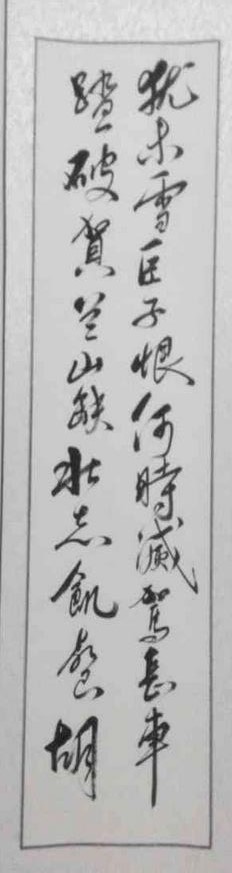 犹未雪臣子恨何時滅駕長車
踏破賀兰山缺壮志飢餐胡